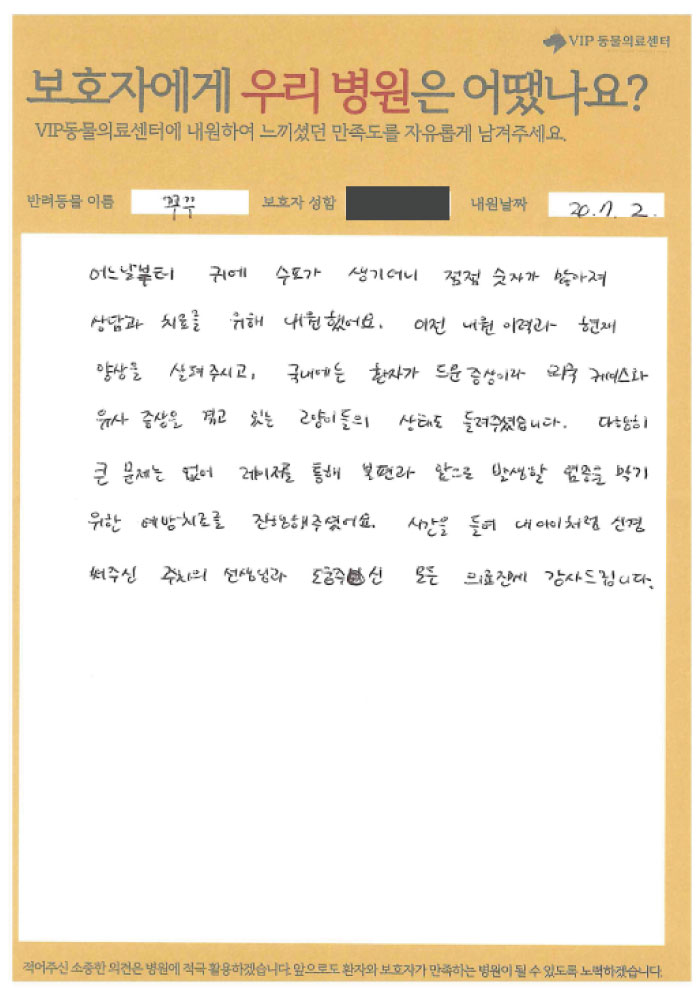 VIP 동물의료센터
보호자에게 우리 병원은 어땠나요?
VIP동물의료센터에 내원하여 느끼셨던 만족도를 자유롭게 남겨주세요.
반려동물 이름 꾸꾸 보호자 성함 내원날짜 20. 7. 2.
어느날부터 귀에 수포가 생기더니 점점 숫자가 많아져
상담과 치료를 위해 내원했어요. 이전 내원 이력과 현재
양상을 살펴주시고, 국내에는 환자가 드문 증상이라 미국 케이스와
유사 증상을 겪고 있는 고양이들의 상태도 들려주셨습니다. 다행히
큰 문제는 없어 레이저를 통해 불편과 앞으로 발생할 염증을 막기
위한 예방치료를 진행해주셨어요. 시간을 들여 내 아이처럼 신경
써주신 주치의 선생님과 도움주신 모든 의료진께 감사드립니다.
적어주신 소중한 의견은 병원에 적극 활용하겠습니다. 앞으로도 환자와 보호자가 만족하는 병원이 될 수 있도록 노력하겠습니다.